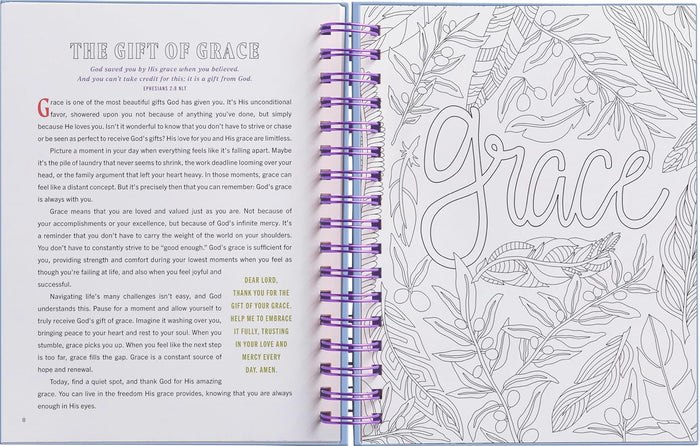 THE GIFT OF GRACE
God saved you by His grace when you believed.
And you can't take credit for this; it is a gift from God.
EPHESIANS 2:8 NLT
Grace is one of the most beautiful gifts God has given you. It's His unconditional
favor, showered upon you not because of anything you've done, but simply
because He loves you. Isn't it wonderful to know that you don't have to strive or chase
or be seen as perfect to receive God's gifts? His love for you and His grace are limitless.
Picture a moment in your day when everything feels like it's falling apart. Maybe
it's the pile of laundry that never seems to shrink, the work deadline looming over your
head, or the family argument that left your heart heavy. In those moments, grace can
feel like a distant concept. But it's precisely then that you can remember: God's grace
is always with you.
Grace means that you are loved and valued just as you are. Not because of
your accomplishments or your excellence, but because of God's infinite mercy. It's
a reminder that you don't have to carry the weight of the world on your shoulders.
You don't have to constantly strive to be "good enough." God's grace is sufficient for
you, providing strength and comfort during your lowest moments when you feel as
though you're failing at life, and also when you feel joyful and
successful.
Navigating life's many challenges isn't easy, and God
understands this. Pause for a moment and allow yourself to
truly receive God's gift of grace. Imagine it washing over you,
bringing peace to your heart and rest to your soul. When you
stumble, grace picks you up. When you feel like the next step
is too far, grace fills the gap. Grace is a constant source of
hope and renewal.
Today, find a quiet spot, and thank God for His amazing
grace. You can live in the freedom His grace provides, knowing that you are always
enough in His eyes.
DEAR LORD,
THANK YOU FOR THE
GIFT OF YOUR GRACE.
HELP ME TO EMBRACE
IT FULLY, TRUSTING
IN YOUR LOVE AND
MERCY EVERY
DAY. AMEN.
8
grace